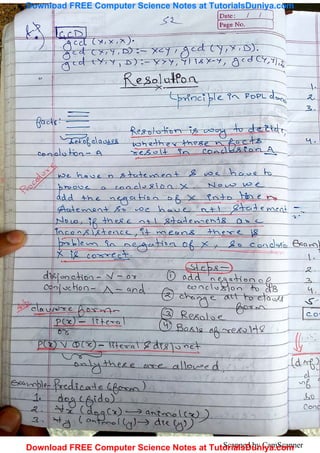 Download FREE Computer Science Notes at TutorialsDuniya.com
52
Date: / /
Page No.
GCD
gcd (X, X, X).
gcd (X, Y, D) :- X<Y, gcd (Y, X, D).
gcd (X, Y, D) :- X>Y, Y1 is X-Y, gcd (Y, Y1,
Resolution
principle in POPL
facts:
set of clauses
conclution - A
Resolution is way to decide,
whether these n facts
result in conclusion A
Procedure
we have n statement & we have to
prove a conclusion X. Now we
add the negation of X into these n
statement so we have n+1 statement
Now, if these n+1 statements are
inconsistence, it means there is
problem in negation of X, so conclusion
X is correct.
Steps:-
disjunction - V - or
Conjuction - Λ - and
① add negation of
conclusion to DB
② change all to clause
form
③ Resolve
④ Basis of results
clausure form-
P(x) - literal
or
P(x) V Q(x) - literal & disjunct
only these are allowed
Example- Predicate (form)
1. dog (fido)
2. ∀x (dog(x) → animal(x))
3. ∀y (animal(y) → die(y))
1.
2.
3.
4.
Exam
1.
2
3.
4.
5
Scanned by CamScanner
Download FREE Computer Science Notes at TutorialsDuniya.com